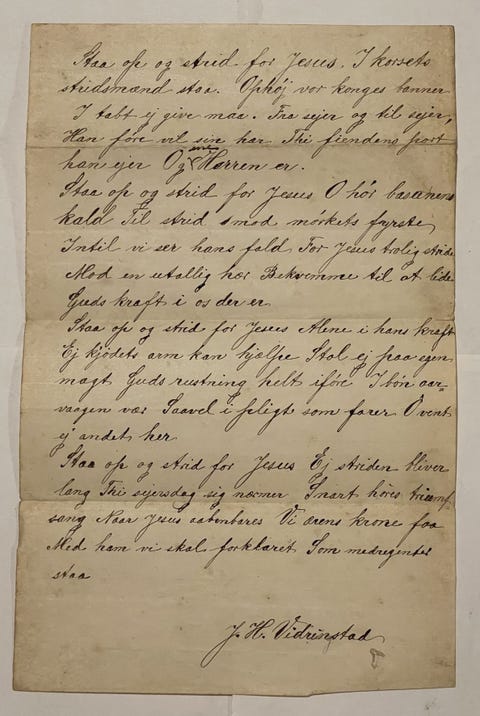 Staa op og strid for Jesus. I korsets
stridsmænd staa. Ophøj vor konges banner
I tabt ej give maa. Fra sejer og til sejer,
Han føre vil sin hær Thi fiendens port
han ejer Og Herren er.
Staa op og strid for Jesus O hør basunens
kald Til strid imod mørkets fyrste
Intil vi ser hans fald For Jesus trolig stride
Mod en utallig hær Bekvemme til at lide
Guds kraft i os der er
Staa op og strid for Jesus Alene i hans kraft
Ej kjødets arm kan hjælpe Stol ej paa egen
magt Guds rustning helt iføre I bøn aar-
vaagen vær Saavel i pligt som farer O vent
ej andet her
Staa op og strid for Jesus Ej striden bliver
lang Thi sejersdag sig nærmer Snart høres triumf-
sang Naar Jesus aabenbares Vi ærens krone faa
Med ham vi skal forklaret Som medregenter
staa
J. H. Vidrinstad